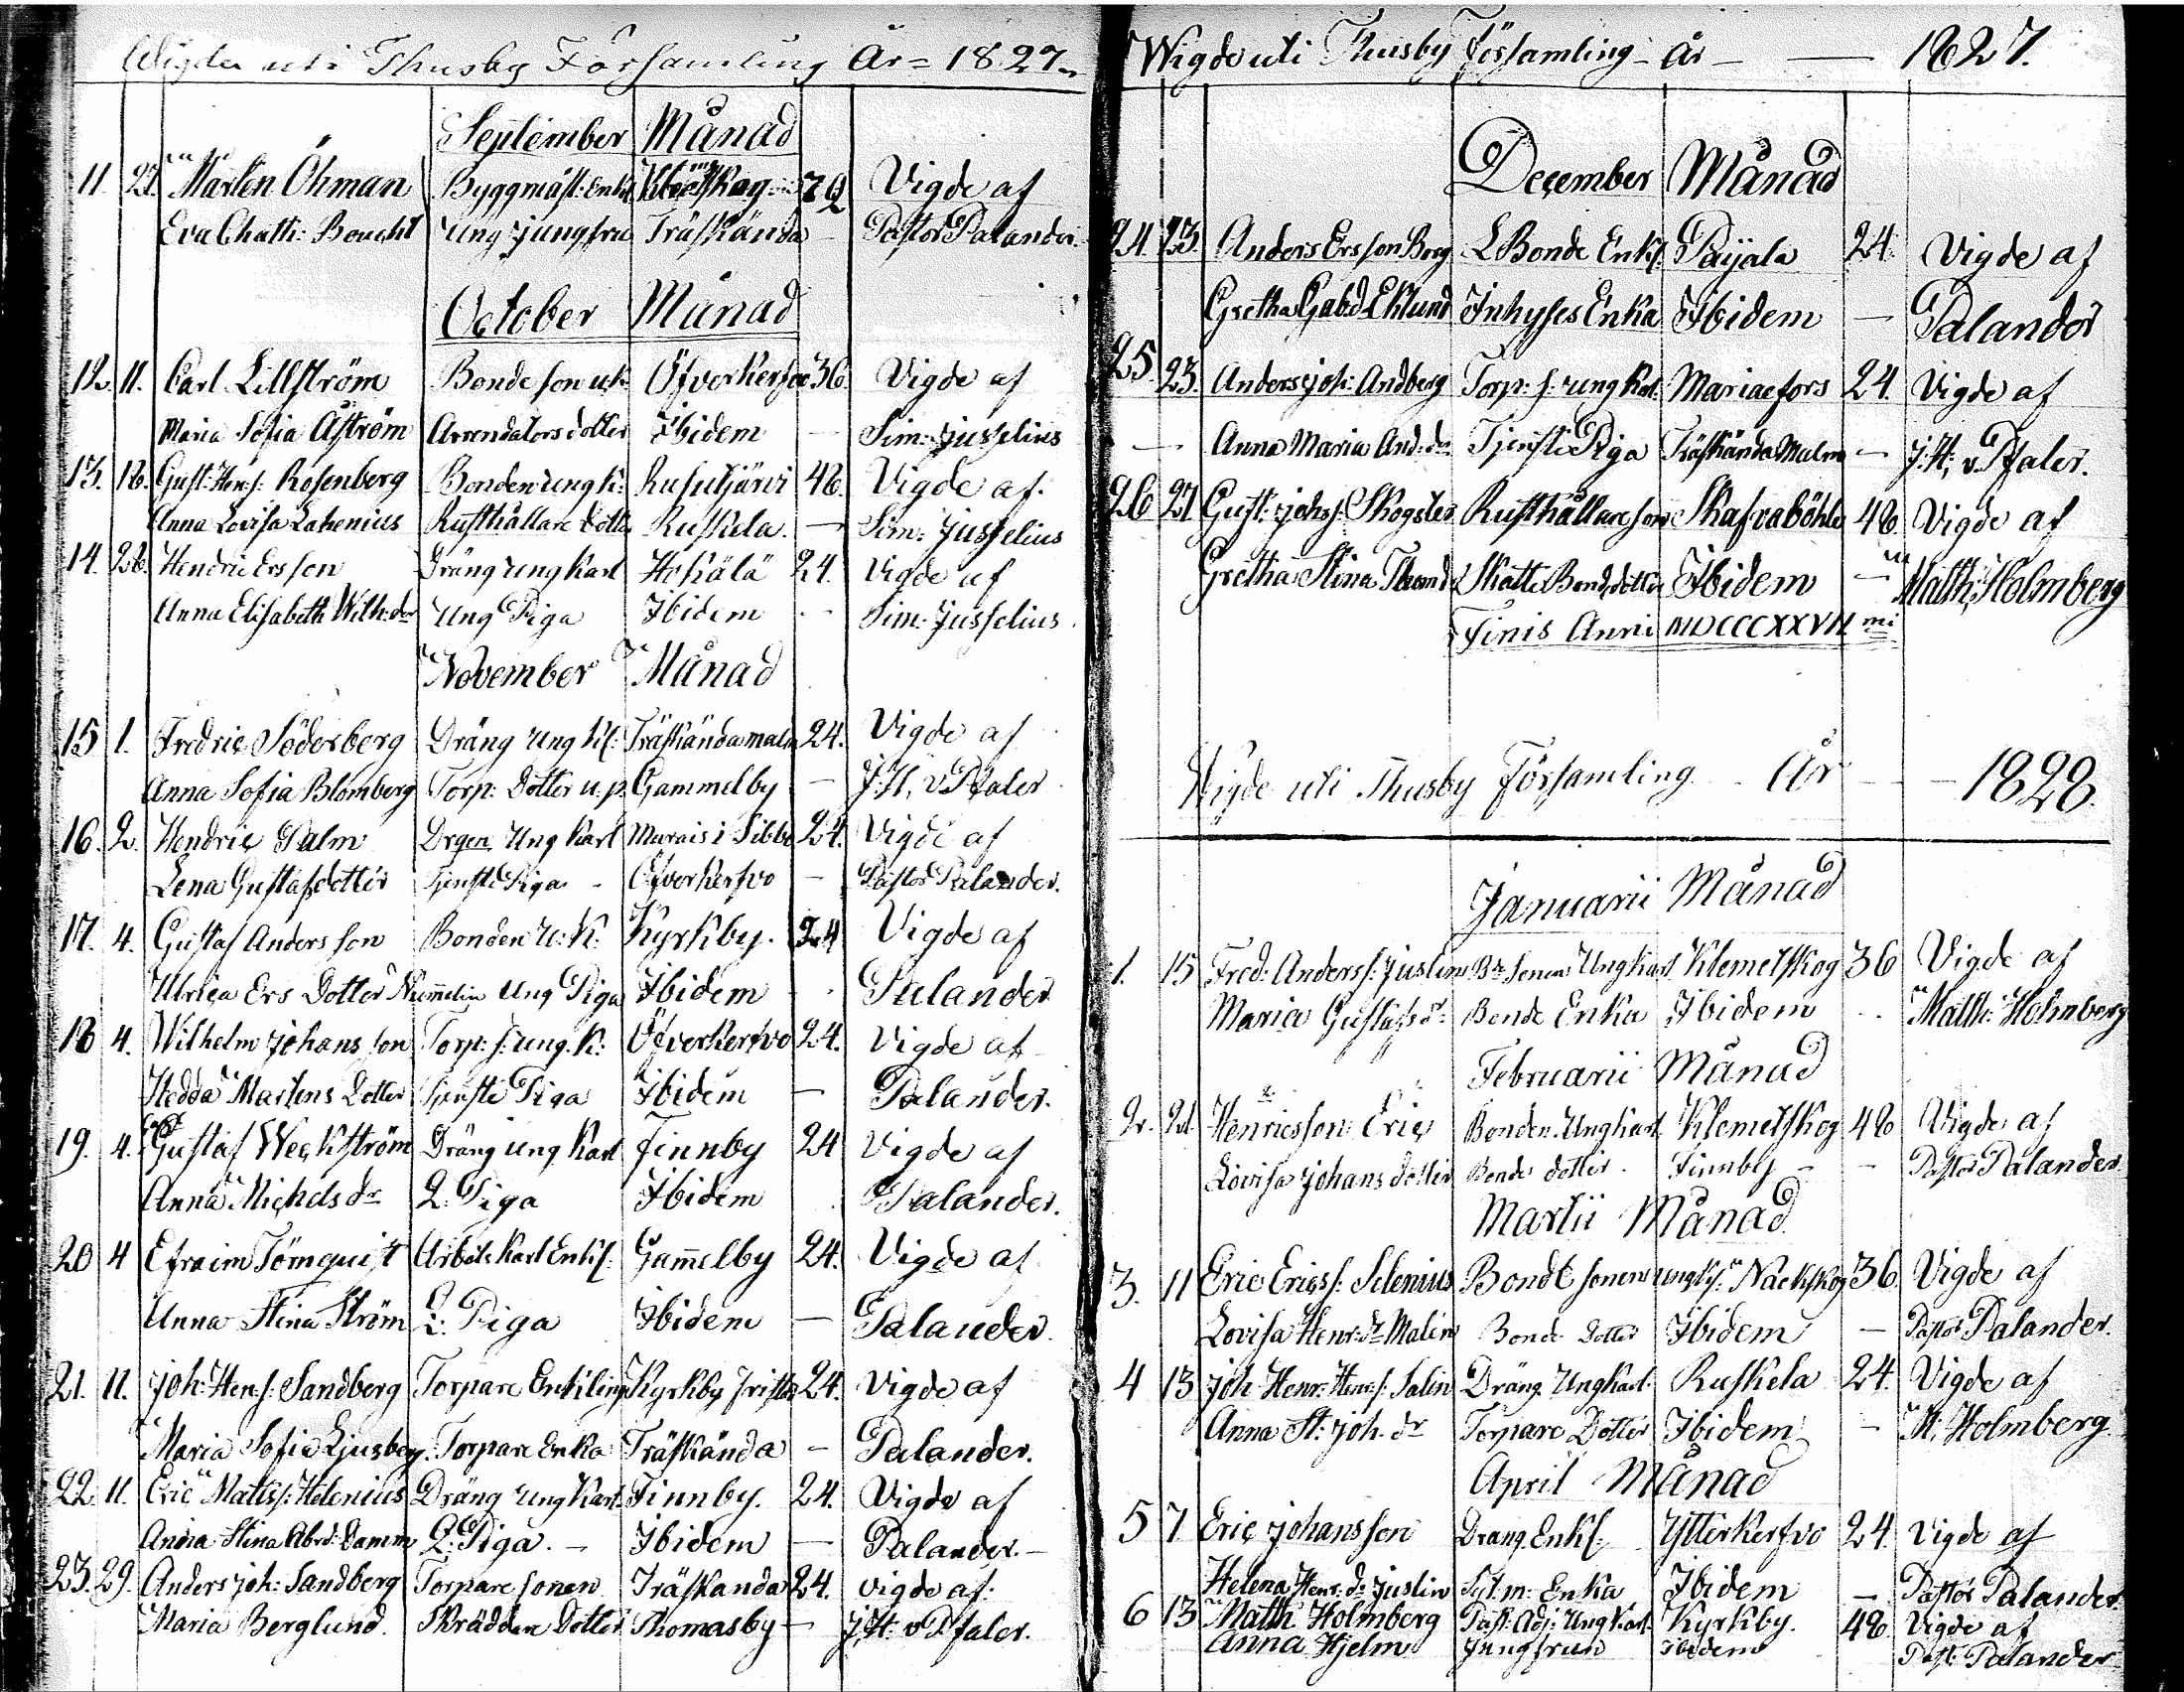 Wigde uti Thusby Församling År = 1827
September Månad
11. 27. Mårten Öhman Byggmäst: Enkl 72 Vigde af
Eva Chath: Boucht Ung Jungfru Träskända - Pastor Palander.
October Månad
12. 11. Carl Lillström Bonde son u.k. Öfverkerfvo 36. Vigde af
Maria Sofia Åström Arrendators dotter Ibidem - Sim: Jusselius
13. 18. Gust: Hen:s: Rosenberg Bonden ung k: Rusutjärvi 48. Vigde af.
Anna Lovisa Lahenius Rusthållare Dotter Ruskela. - Sim: Jusselius
14. 28. Hendric Ersson Dräng ung Karl Hokälä 24. Vigde af
Anna Elisabeth Wilh:dr Ung Piga Ibidem - Sim: Jusselius.
November Månad
15 1. Fredric Söderberg Dräng Ung Kl: Träskända malm 24. Vigde af
Anna Sofia Blomberg Torp: Dotter u.p. Gammelby - J.H. v Pfaler
16. 2. Hendric Palm Drgen Ung Karl Marais i Sibbo 24. Vigde af
Lena Gustafsdotter Tjenste Piga - Öfverkerfvo - Pastor Palander.
17. 4. Gustaf Andersson Bonden u: K: Kyrkby. 24 Vigde af
Ulrica Ers Dotter Nummelin Ung Piga Ibidem - Palander
18 4. Wilhelm Johansson Torp: s: ung. K: Öfverkerfvo 24. Vigde af
Hedda Mårtens Dotter Tjenste Piga Ibidem - Palander.
19. 4. Gustaf Weckström Dräng ung Karl Finnby 24 Vigde af
Anna Michelsdr L: Piga Ibidem Palander.
20 4 Efraim Törnquist Arbets Karl Enkl: Gammelby 24. Vigde af
Anna Stina Ström L: Piga Ibidem - Palander.
21. 11. Joh: Hen:s: Sandberg Torpare Enkling Kyrkby 24. Vigde af
Maria Sofia Ljusberg. Torpare Enka Träskända - Palander.
22 11. Eric Matts:s: Helenius Dräng Ung Karl Finnby. 24. Vigde af
Anna Stina Abr:d: Damm L: Piga. - Ibidem - Palander. -
23. 29. Anders Joh: Sandberg Torpare sonen Träskända 24. vigde af:
Maria Berglund. Skräddare Dotter Thomasby - J.H. v Pfaler.
Wigde uti Thusby Församling - År - 1827.
December Månad
24. 23. Anders Ersson Borg L Bonde Enkl: Paijala 24. Vigde af
Gretha Gab:d Eklund Inhyses Enka Ibidem - Palander
25 23. Anders Joh: Andberg Torp: s: ung Karl Mariaefors 24. Vigde af
- Anna Maria And:dr Tjenste Piga Träskända Malm - J.H. v Pfaler.
26 27 Gust: Johs: Skogster Rusthållare son Skafvaböhle 48. Vigde af
Gretha Stina Skatte Bond dotter Ibidem - Matth: Holmberg
Finis Anni MDCCCXXVII mi
Vigde uti Thusby Församling - År - 1828.
Januarii Månad
1. 15 Fred: Anders s: Juslin Bd: sonen Ung Karl Klemetskog 36 Vigde af
Maria Gustafsdr: Bonde Enka Ibidem - Matth: Holmberg
Februarii Månad
2. 21 Henricsson Eric Bonden Ung Karl Klemetskog 48 Vigde af
Lovisa Johans dotter Bonde dotter. Finnby - - Pastor Palander
Martii Månad
3. 11 Eric Erics s: Selenius Bonde sonen ung K: Näckskog 36. Vigde af
Lovisa Henr:dr Malin Bonde Dotter Ibidem - Pastor Palander.
4 13 Joh Henr: Henr:s: Salin Dräng Ung Karl. Ruskela 24. Vigde af
Anna St: Joh. dr Torpare Dotter Ibidem - M: Holmberg
April Månad
5 7 Eric Johansson Dräng Enkl: Ytterkerfvo 24. Vigde af
Helena Henr. dr Juslin Syt.m: Enka Ibidem - Pastor Palander.
6 13 Matth Holmberg Past: Adj: Ung Karl. Kyrkby. 48. Vigde af
Anna Hjelm Jungfrun Ibidem Past: Palander